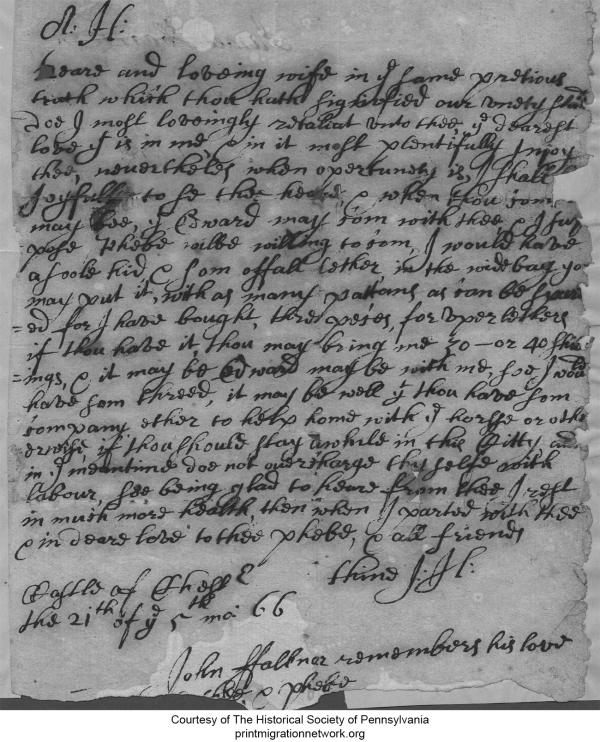 A: H:
Deare and loveing wife in ye same pretious
truth which thou hath signified our unety
doe I most lovingly retaliat unto thee, ye dearest
love yt is in me, & in it most plentifully Injoy
thee, nevertheles when opertunety is, I shall
Joyfully to se thee heare, & when thou com,
may bee, yt Edward may com with thee, & I sup
pose Phebe wilbe willing to com, I would have
a soole kid, & som offall lether, in the widebag yo
may put it, with as many pattans as can be spar
=ed for I have bought, three peses, for uperlethers
if thou have it, thou may bring me 30 - or 40 shil
=ings, & it may be Edward may be with me, soe I would
have som threed, it may be well yt thou have som
company ether to help home with ye horsse or oth
erwise, if thou should stay awhile in this Citty and
in ye meantime doe not overcharge thy selfe with
labour, soe being glad to heare from thee I rest
in much more health, then when I parted with thee
& in deare love to thee phebe, & all friends
thine J: H:
Castle of Chest
the 21th of ye 5th mo: 66
John ffalkner remembers his love
thee & phebe
Courtesy of The Historical Society of Pennsylvania
printmigrationnetwork.org